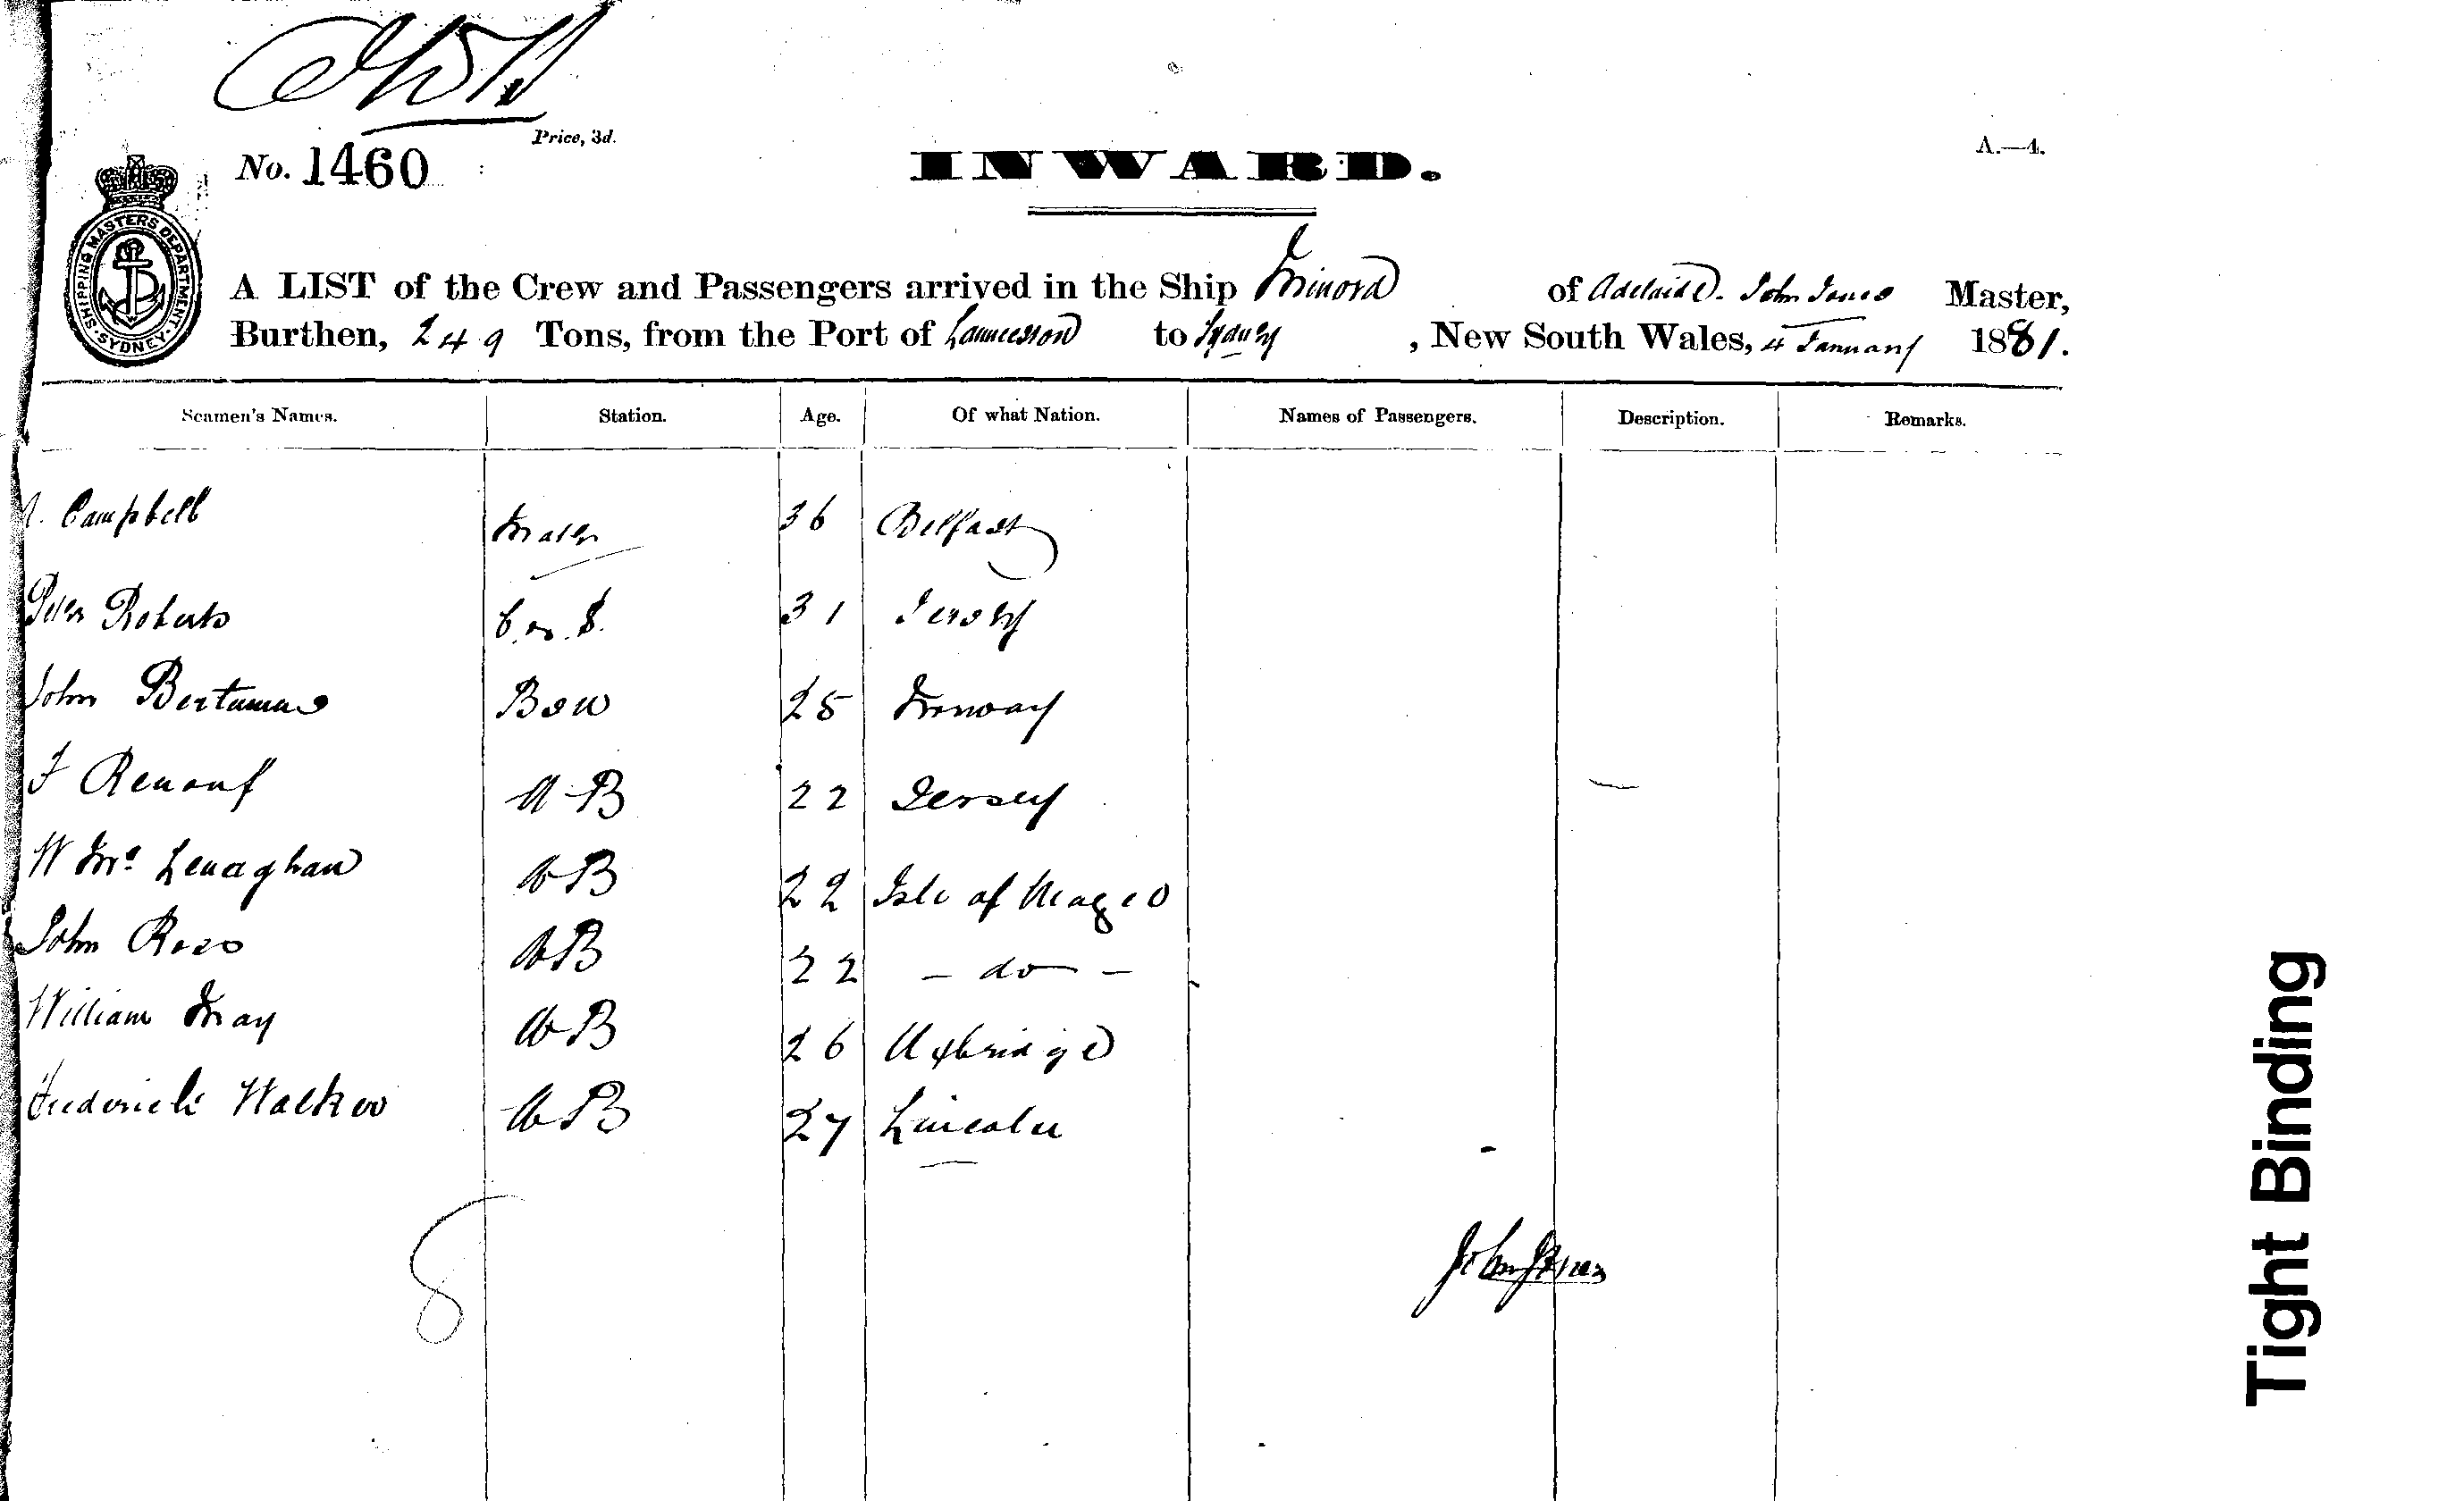 Price, 3d.
No. 1460
INWARD.
A.—4.
SHIPPING MASTERS DEPARTMENT. SYDNEY.
A LIST of the Crew and Passengers arrived in the Ship Minora of Adelaide. John Jones Master,
Burthen, 249 Tons, from the Port of Launceston to Sydney, New South Wales, 4 January 1881.
Seamen's Names. Station. Age. Of what Nation. Names of Passengers. Description. Remarks.
Campbell Mate 36 Belfast
Peter Roberts 31 Jersey
John 25 Norway
F Renouf A B 22 Jersey
W Mc Lenaghan A B 22 Isle of Magee
John Ross A B 22 - do -
William May A B 26 Uxbridge
Frederick Walker A B 27 Lincoln
8
John Jones
Tight Binding